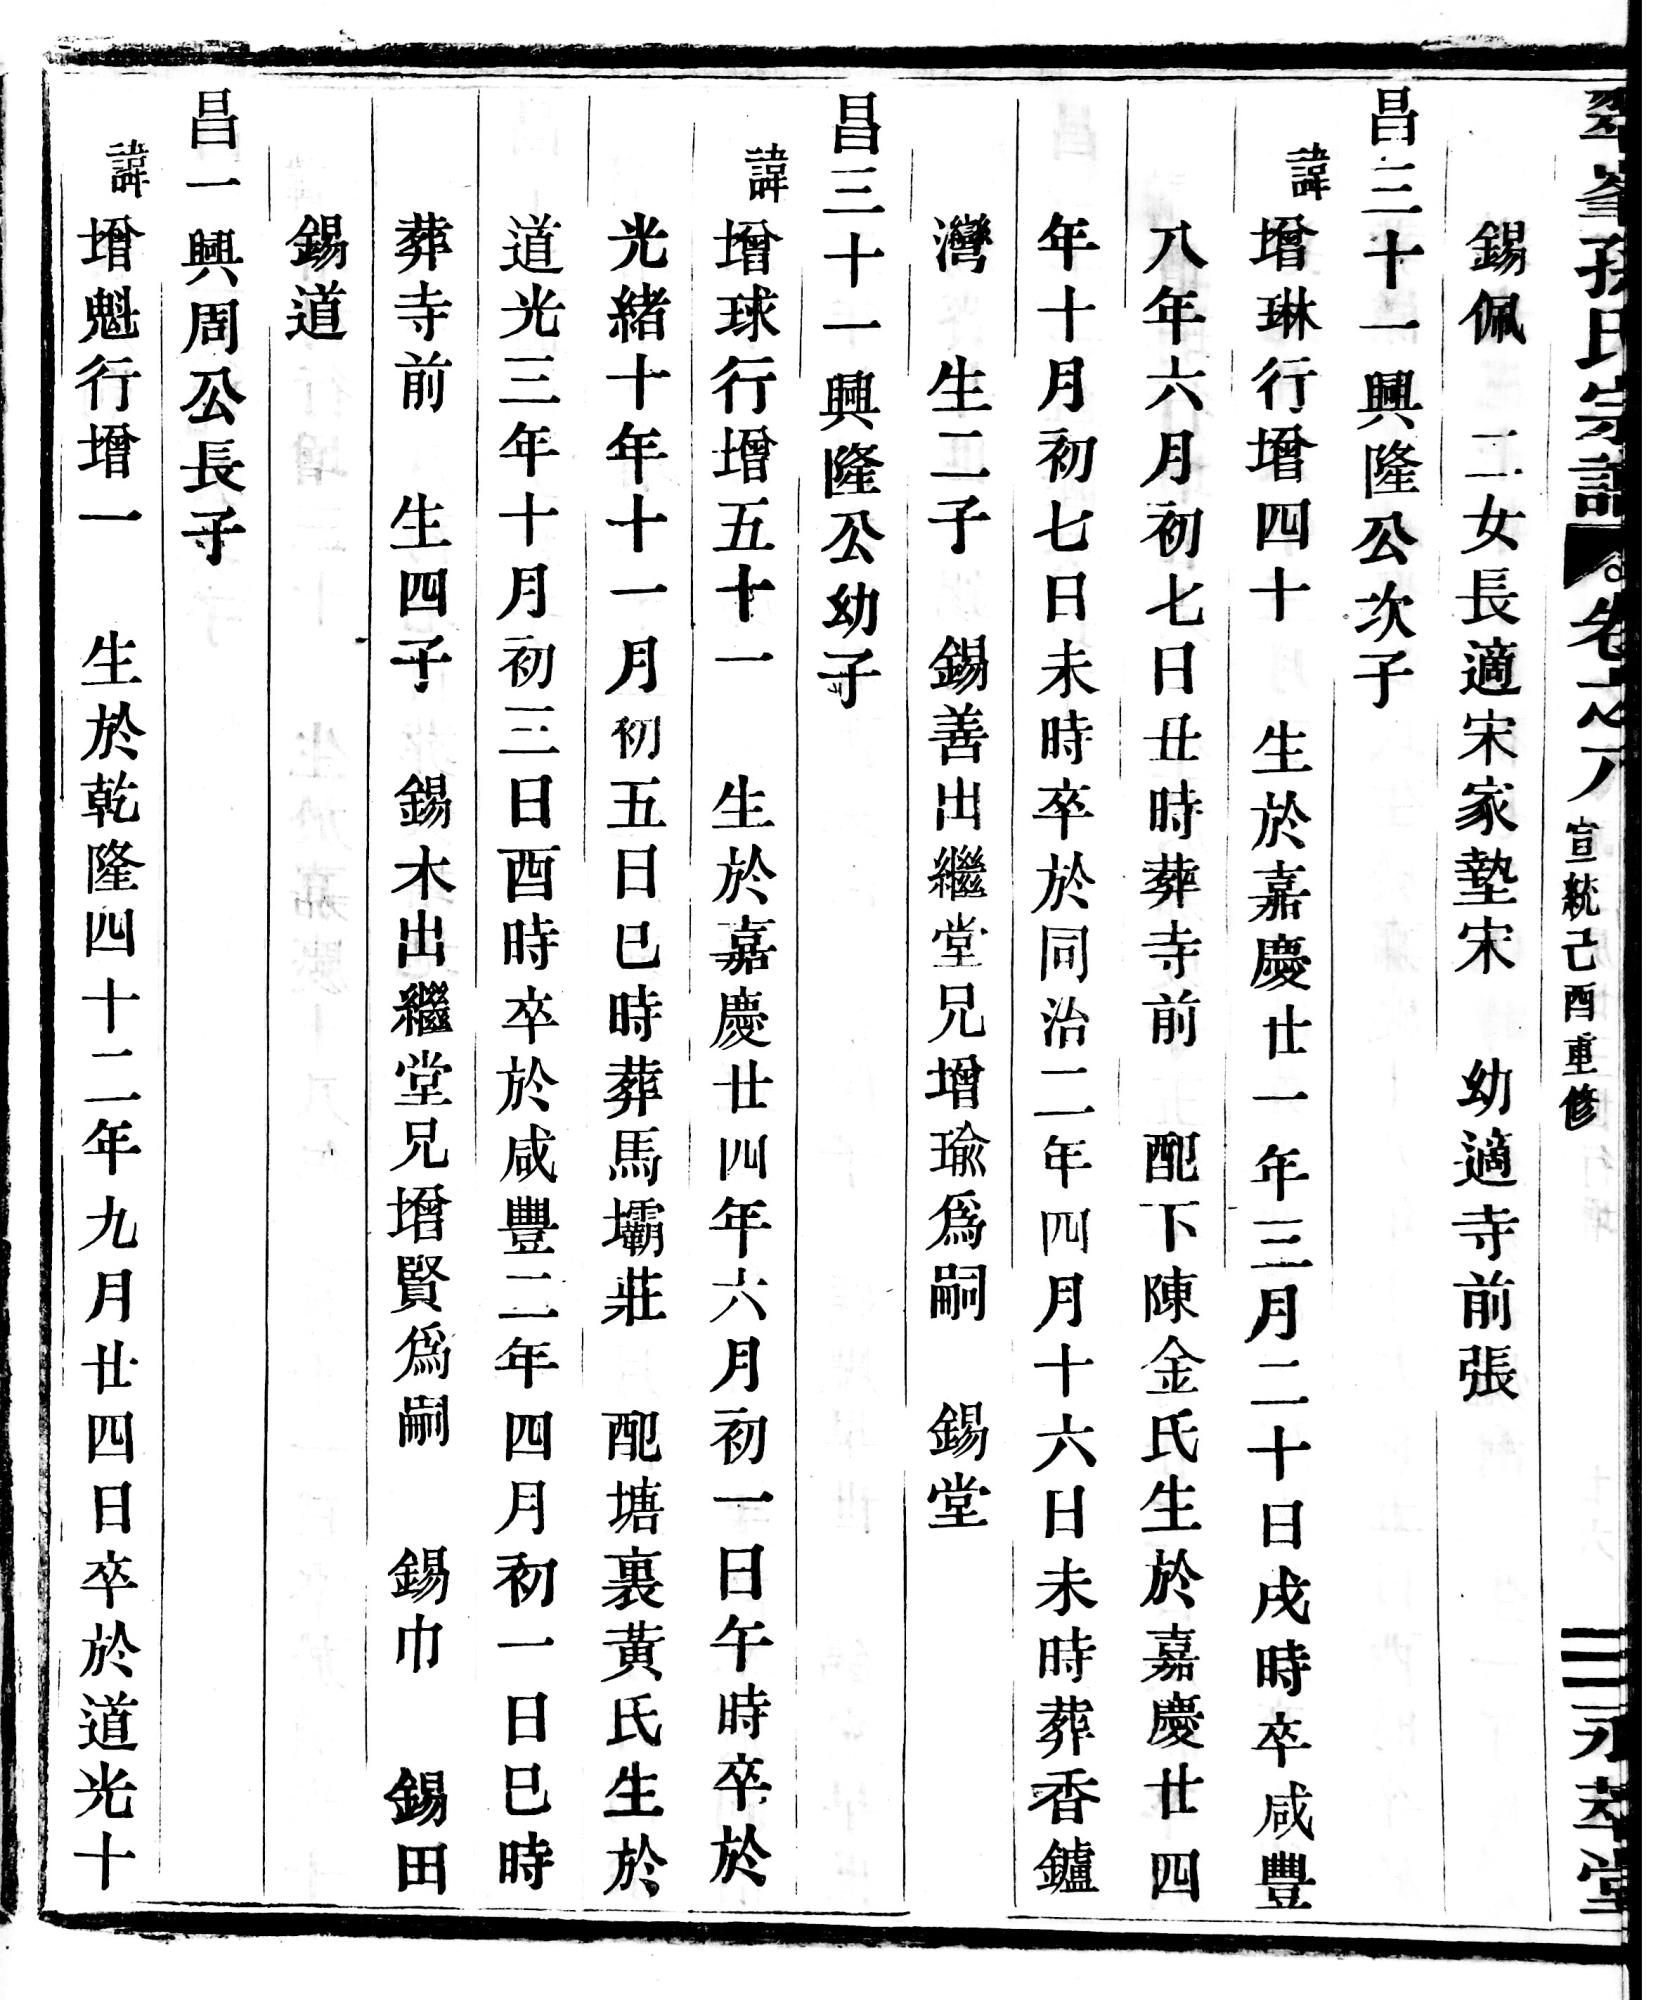 翠峯孫氏宗譜 卷之八 宣統己酉重修 永萃堂
錫佩 二女長適宋家墊宋 幼適寺前張
昌三十一興隆公次子
諱增琳行增四十 生於嘉慶廿一年三月二十日戌時卒咸豐
八年六月初七日丑時葬寺前 配下陳金氏生於嘉慶廿四
年十月初七日未時卒於同治二年四月十六日未時葬香鑪
灣 生二子 錫善出繼堂兄增瑜爲嗣 錫堂
昌三十一興隆公幼子
諱增球行增五十一 生於嘉慶廿四年六月初一日午時卒於
光緒十年十一月初五日巳時葬馬壩莊 配塘裏黃氏生於
道光三年十月初三日酉時卒於咸豐二年四月初一日巳時
葬寺前 生四子 錫木出繼堂兄增賢爲嗣 錫巾 錫田
錫道
昌一興周公長子
諱增魁行增一 生於乾隆四十二年九月廿四日卒於道光十